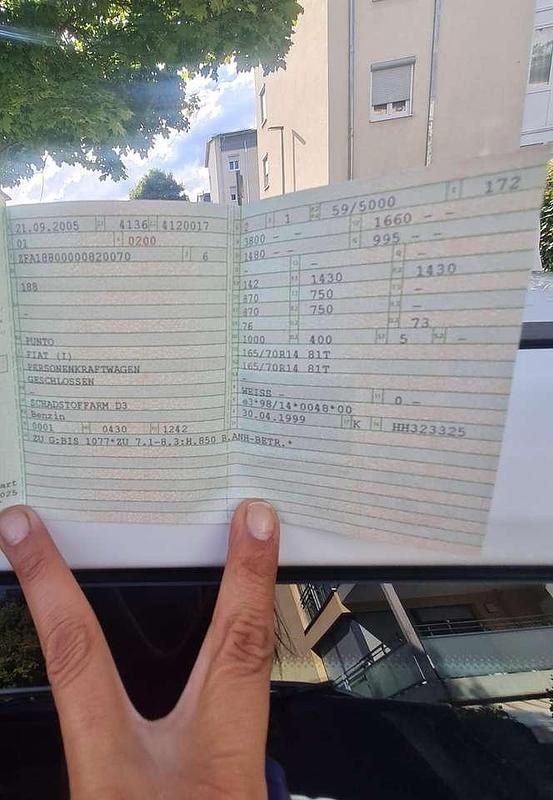 21.09.2005 4136 4120017
01 0200
ZFA18800000820070 6
188
-
PUNTO
FIAT (I)
PERSONENKRAFTWAGEN
GESCHLOSSEN
-
SCHADSTOFFARM D3
Benzin
0001 0430 1242
ZU G:BIS 1077*ZU 7.1-8.3:H.850 B.ANH-BETR.*
art
025
2 1 59/5000 172
3800 - - 1660 - -
- - 995 - -
1480 - - - -
142 1430 1430
870 750 -
870 750 -
76 73
1000 400 5 -
165/70R14 81T
165/70R14 81T
-
WEISS - 0 -
e3*98/14*0048*00
30.04.1999 K HH323325